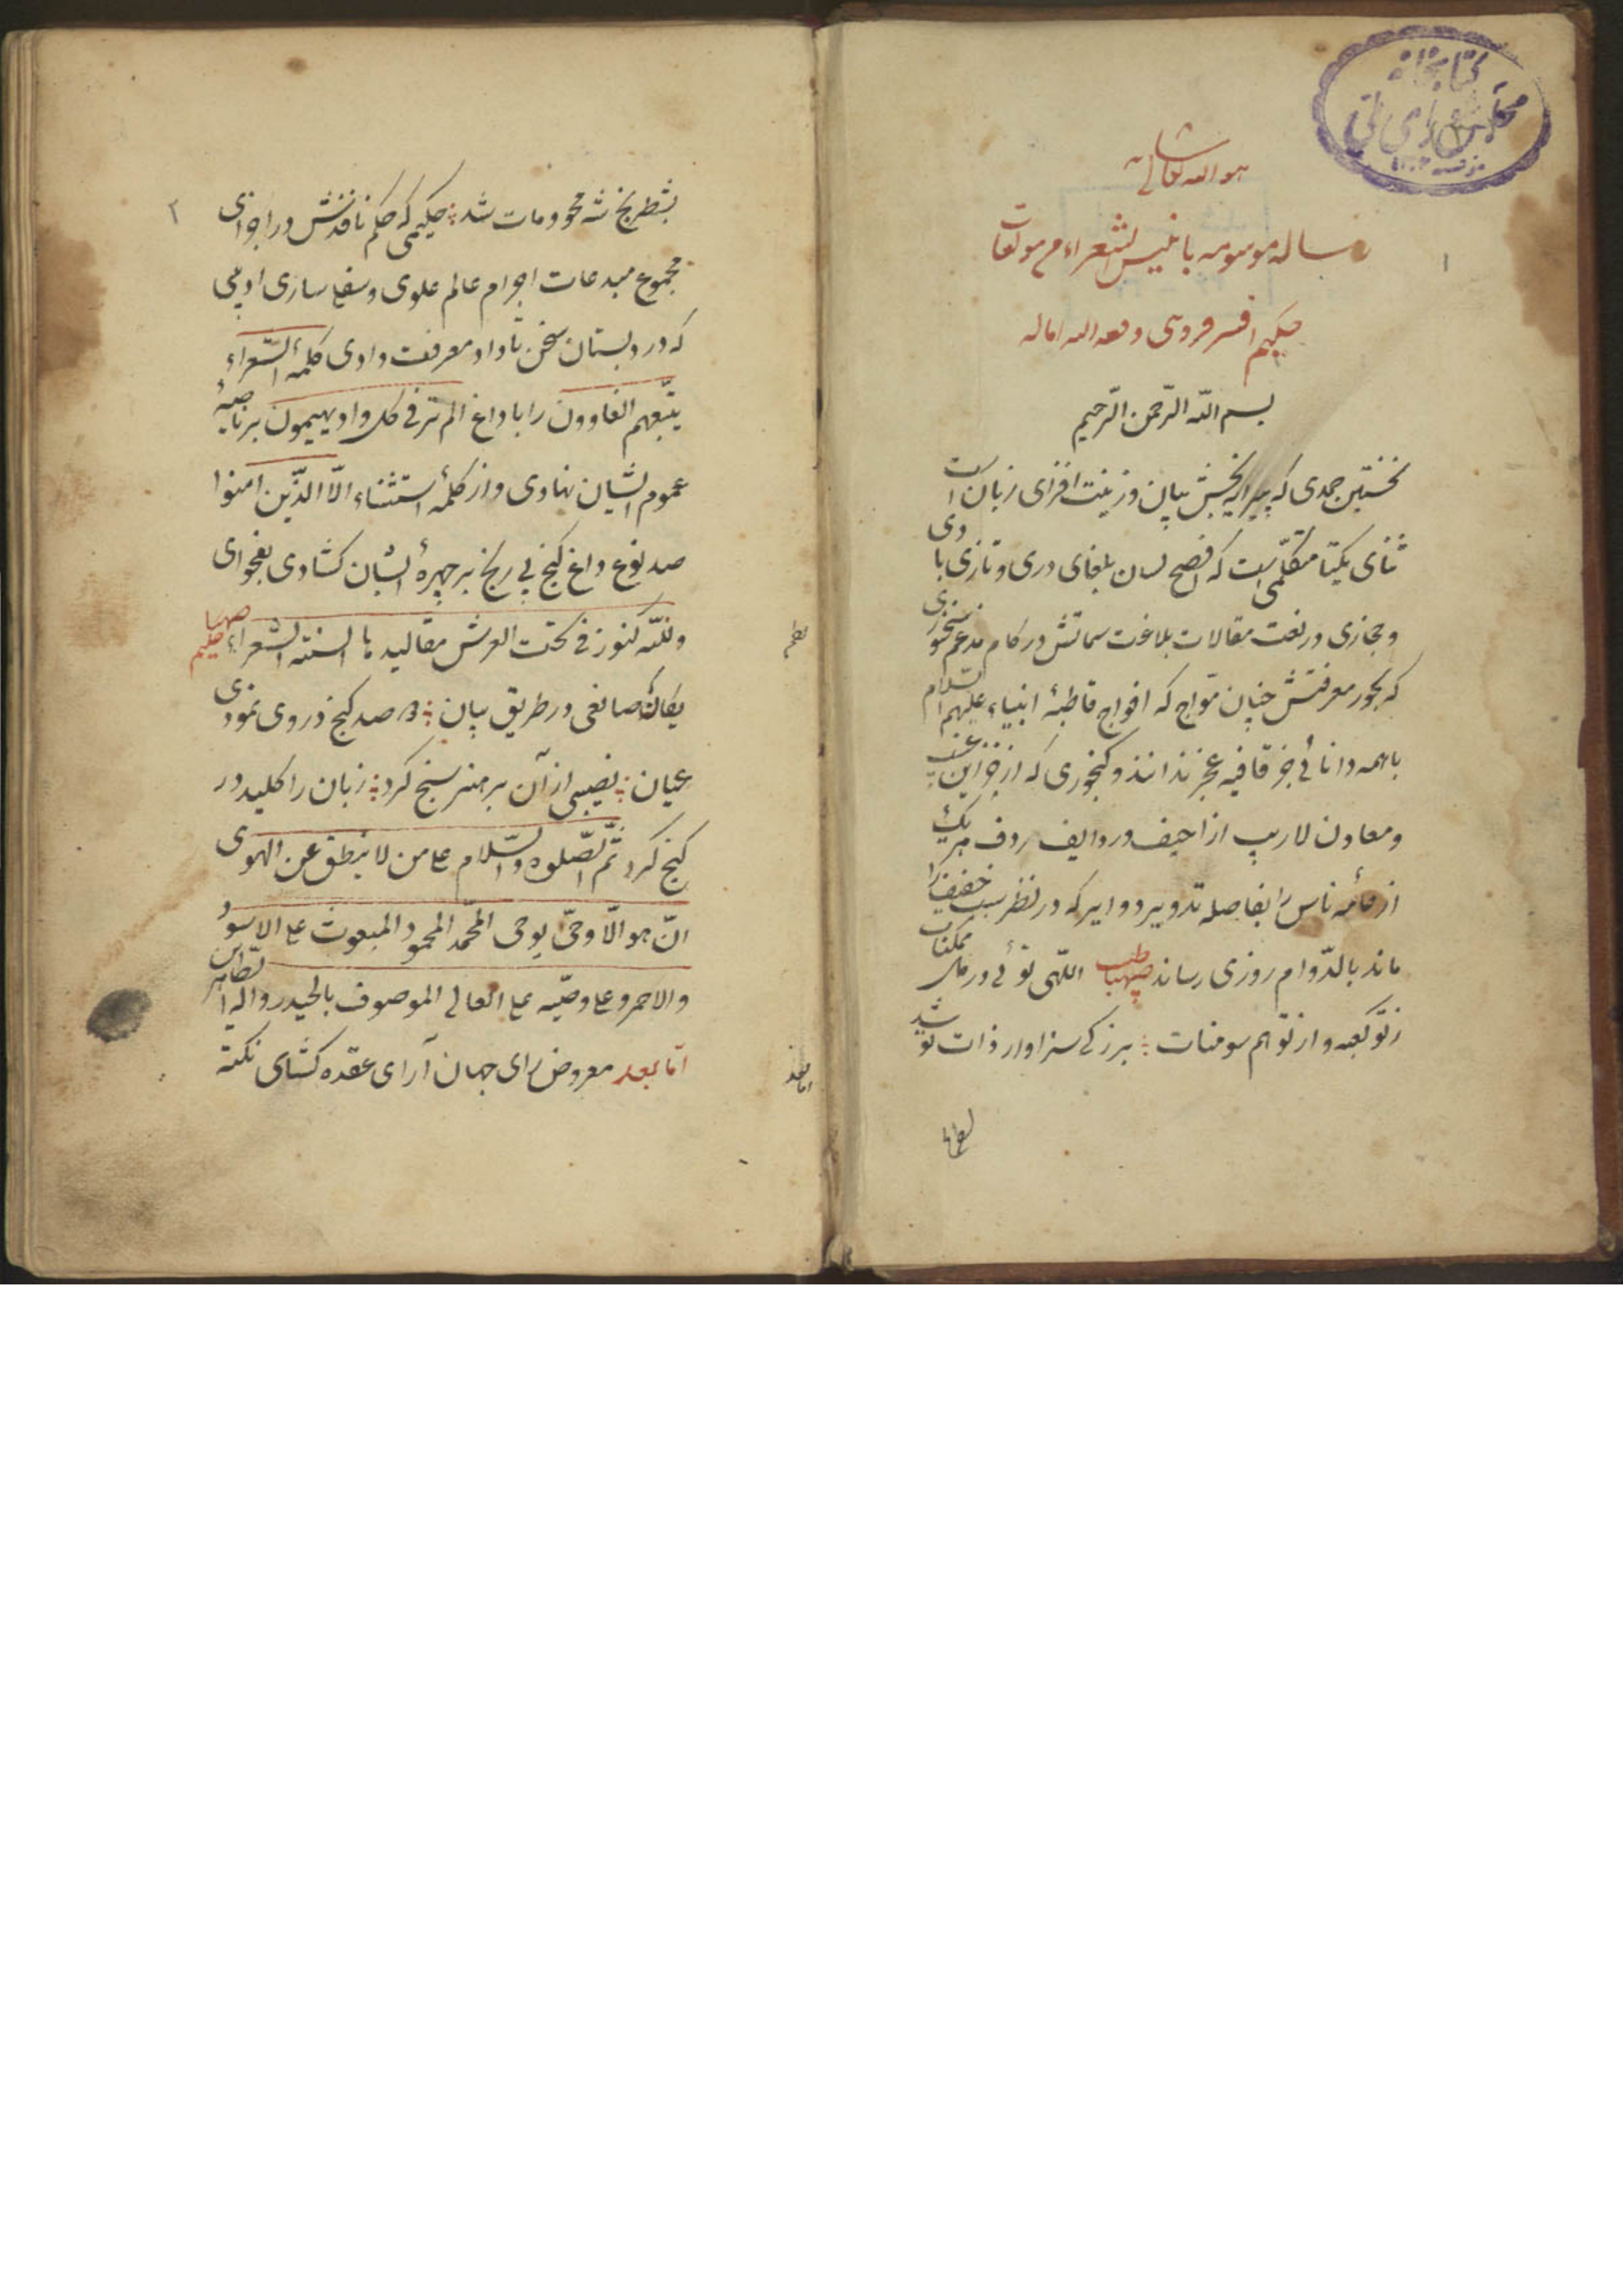 کتابخانه
مجلس شورای ملی
۱
هو الله تعالی شانه
رساله موسومه بانیس الشعراء من مولفات
حکیم افسر فردوسی
بسم الله الرّحمن الرّحیم
نخستین حمدی که پیرایه بخش بیان و زینت افزای زبان است
ثنای یکتا متکلّمی است که افصح لسان بلغای دری و تازی با
و حجازی در نعت مقالات بلاغت سماتش در کام مدغم شود
که بحور معرفتش چنان موّاج که افواج قاطبهٔ انبیاء علیهم السّلام
با همه دانائی جز قافیه عجز ندانند و گنجوری که از خزاین غیب
و معادن لاریب ازاحیف و روادیف ردف هریک
از قائمه ناس را بفاصله تدویر دوایر که در نظر سبب خفیف را
ماند بالدّوام روزی رساند صهبا الهی توئی در ممکنات
ز تو کعبه و از تو هم سومنات برزگی سزاوار ذات تو شد
۲
بشطرنج نه محو و مات شد حکیمی که حکم نافذش در اجزای
مجموع مبدعات اجرام عالم علوی و سفلی ساری ادیبی
که در دبستان سخن تا داد معرفت دادی کلمهٔ الشّعراء
یتّبعهم الغاوون را با داغ الم تر فی کل واد یهیمون بر ناصیهٔ
عموم ایشان نهادی و از کلمهٔ استثناء الّا الّذین امنوا
صد نوع داغ گنج بی رنج بر چهرهٔ ایشان گشادی بفحوای
ولله کنوز فی تحت العرش مقالیدها السنته الشعراء حکیم صهبا
یگانه صانعی در طریق بیان صد گنج در وی نمودی
عیان نصیبی از آن بر هنر سنج کرد زبان را کلید در
گنج کرد ثمّ الصّلوه والسّلام علی من لا ینطق عن الهوی
انّ هو الّا وحیّ یوحی المحمّد المحمود المبعوث علی الاسود
والاحمر و علی وصّیه علی العالی الموصوف بالحیدر و اله الطّاهر
امّا بعد معروض رای جهان آرای عقده گشای نکته
نظم
اما بعد